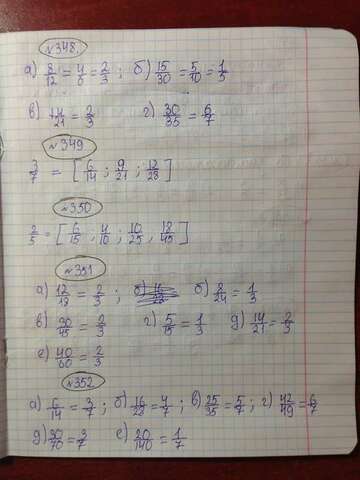 №348.
а) 8/12 = 4/6 = 2/3 ; б) 15/30 = 5/10 = 1/5
в) 14/21 = 2/3 г) 30/35 = 6/7
№349
3/7 = [ 6/14 ; 9/21 ; 12/28 ]
№350
2/5 = [ 6/15 ; 4/10 ; 10/25 ; 18/45 ]
№351
а) 12/18 = 2/3 ; б) 8/24 = 1/3
в) 30/45 = 2/3 г) 5/15 = 1/3 д) 14/21 = 2/3
е) 40/60 = 2/3
№352
а) 6/14 = 3/7 ; б) 16/28 = 4/7 ; в) 25/35 = 5/7 ; г) 42/49 = 6/7
д) 30/70 = 3/7 е) 20/140 = 1/7